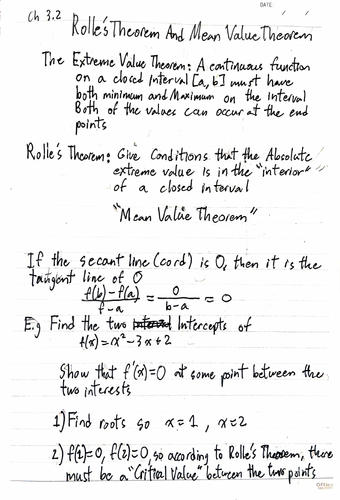 DATE: / /
Ch 3.2
Rolle's Theorem And Mean Value Theorem
The Extreme Value Theorem: A continuous function
on a closed Interval [a, b] must have
both minimum and Maximum on the Interval
Both of the values can occur at the end
points
Rolle's Theorem: Give Conditions that the Absolute
extreme value is in the "interior"
of a closed interval
"Mean Value Theorem"
If the secant line (cord) is 0, then it is the
tangent line of 0
f(b)-f(a) / f-a = 0 / b-a = 0
E.g Find the two Intercepts of
f(x) = x² - 3x + 2
Show that f'(x)=0 at some point between the
two interests
1) Find roots so x = 1, x = 2
2) f(1)=0, f(2)=0, so according to Rolle's Theorem, there
must be a "Critical Value" between the two points
Office